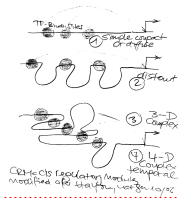 TF-Binding Sites
① Simple compact
or diffuse
② distant
③ 3-D
Complex
④ 4-D
Complex
temporal
CRM = CIS regulatory module
modified after